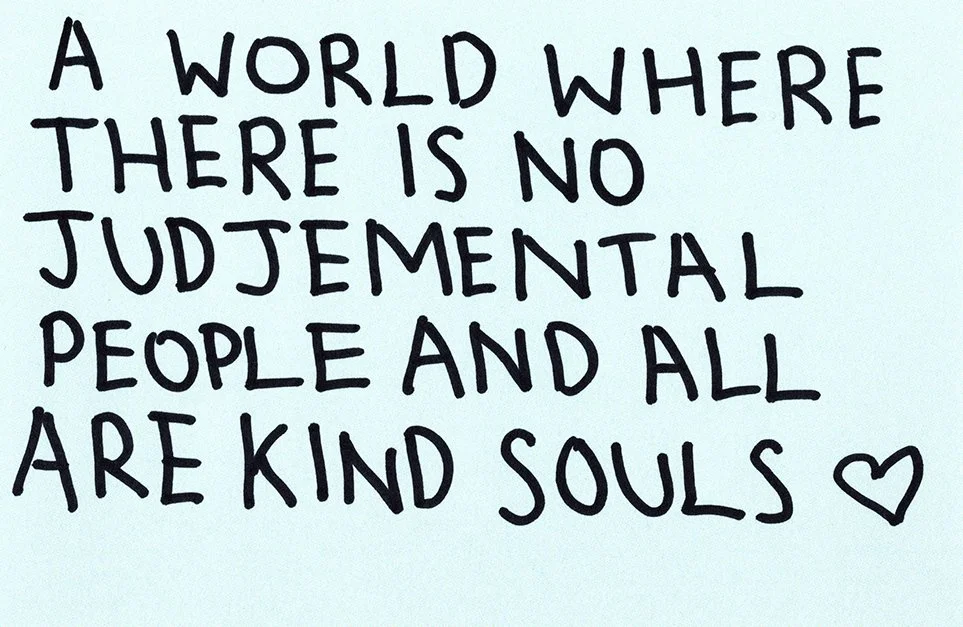 A WORLD WHERE
THERE IS NO
JUDJEMENTAL
PEOPLE AND ALL
ARE KIND SOULS ♡